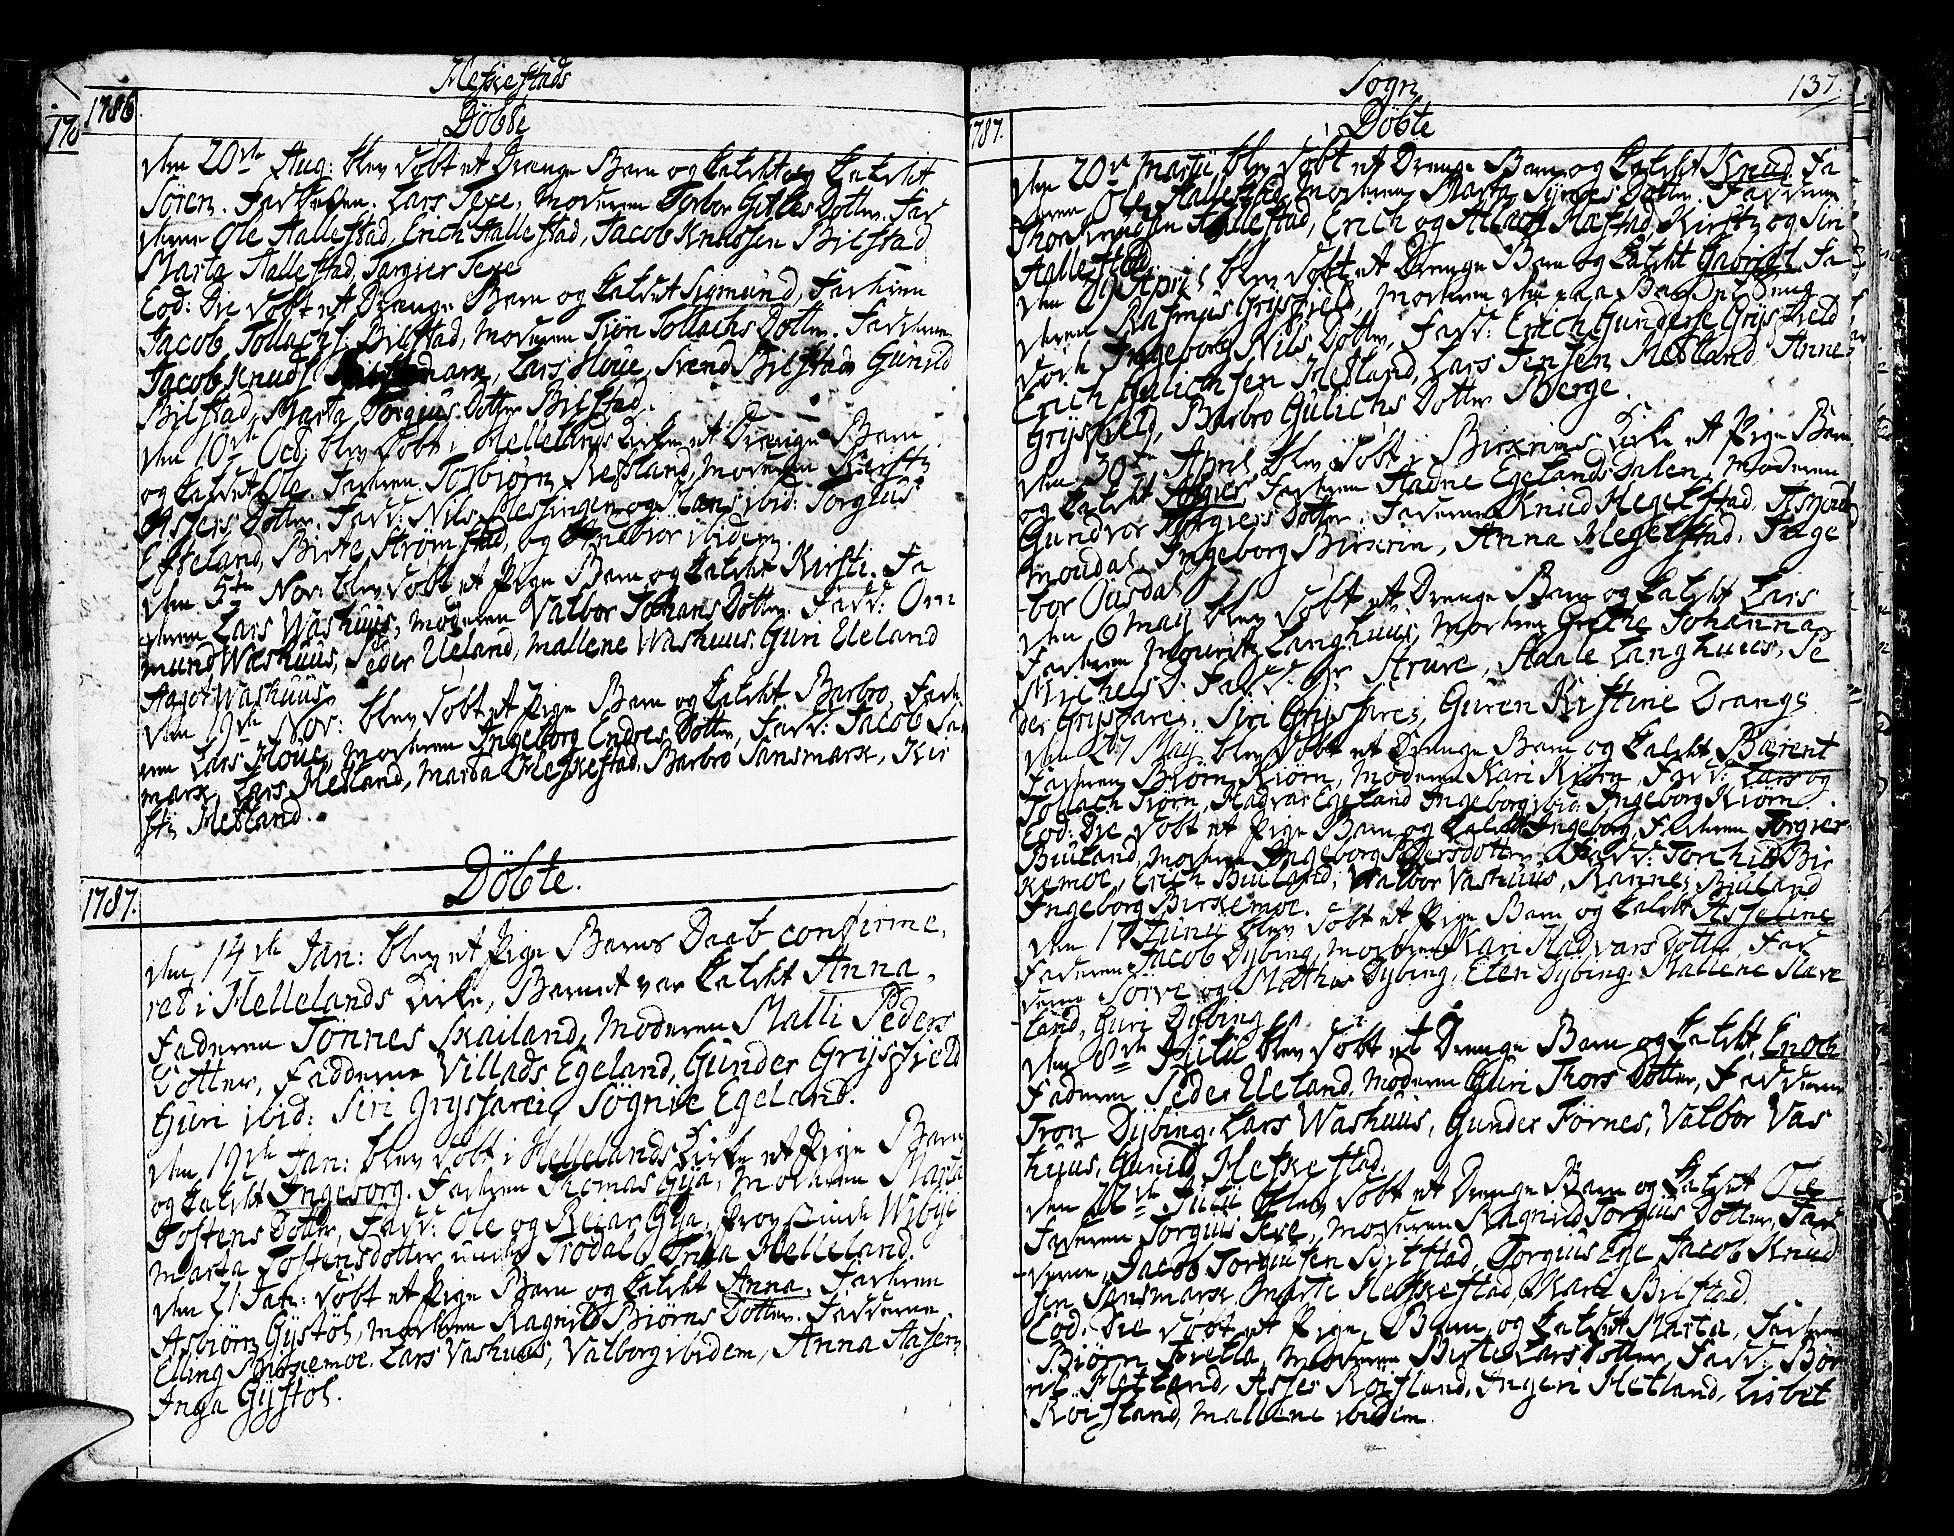 Heskestads
Döbte
1786.
den 20de Aug: blev döbt et Drenge Barn og kaldt
Sören. Faderen Lars Texe, Moderen Torbor Gitles Dotter. Fad
derne Ole Hallestad, Erich Hallestad, Jacob Knudsen Bilstad
Marta Hallestad, Targier Texe
Eod: Die döbt et Drenge Barn og kaldet Sigmund, Faderen
Jacob Tollachs. Bilstad, Moderen Siön Tollachs Dotter. Fadderne
Jacob Knuds. Lars Houe, Svend Bilstad Gunild
Bilstad, Marta Torgius Dotter Bilstad.
den 10de Oct. blev döbt i Hellelands Kirke et Drenge Barn
og kaldet Ole. Faderen Torbiörn Refsland, Moderen Kirsti
Asfers Dotter. Fadd: Nils Messingen og Hans ibid: Torgius
Efteland, Birte Strömstad, og ibidem.
den 5te Nov: blev döbt et Pige Barn og kaldt Kirsti. Fa
deren Lars Washuus, Moderen Valbor Johans Dotter. Fadd: Om
mund Washuus, Peder Ueland, Mallene Washuus. Guri Ueland
Aasot Washuus
den 19de Nov: blev döbt et Pige Barn og kaldt Barbro, Fade
ren Lars Houe, Moderen Ingeborg Endres Dotter, Fadd: Jacob San
marx, Lars Hetland, Marta Heskestad, Barbro Sansmarx, Kir
sti Hetland.
Döbte.
1787.
den 14de Jan: blev et Pige Barns Daab confirme,
ret i Hellelands Kirke, Barnet var kaldt Anna,
Faderen Tönnes Skailand, Moderen Malli Peders
Dotter, Fadderne Villads Egeland, Gunder Grysfield
Guri ibid: Siri Gryssarei, Sögnie Egeland.
den 19de Jan: blev döbt i Hellelands Kirke et Pige Barn
og kaldt Ingeborg. Faderen Thomas Gya, Moderen Marta
Tostens Dotter, Fadd: Ole og Reiar Gya, Wibye
Marta Tostensdotter Trodal Helleland.
den 21 Jan: döbt et Pige Barn og kaldt Anna, Faderen
Asbiörn Gystöl, Moderen Ragnild Biörns Dotter. Fadderne
Elling Birkemoe. Lars Vashuus, Valborg ibidem, Anna Aasen
Inga Gystöl.
Sogn
137.
Döbte
1787.
den 20de Martii blev döbt et Drenge Barn og kaldt Knud. Fa
deren Ole Hallestad, Moderen Marta Dotter. Fadderne
Thor Knudsen Hallestad, Erich og Hæstad, Kirsti og Sin
Hallestad
den 29 April blev döbt et Drenge Barn og kaldt Gabriel. Fa
deren Rasmus Grysfield, Moderen
död Ingeborg Nils Dotter, Fadd: Erich Gunderse Grysfield
Erich Gulichsen Hetland, Lars Jensen Hetland, Anne
Grysfield, Barbro Gulichs Dotter Bierge.
den 30te April blev döbt i Birkrims Kirke et Pige Barn
og kaldt Faderen Aadne Egelandsdalen, Moderen
Gundvor Torgiers Dotter, Fadderne Knud Hegelstad, Asmund
Moudal, Ingeborg Birkrim, Anna Hegelstad. Inge
bor Ousdal
den 6 May blev döbt et Drenge Barn og kaldt Lars
Faderen Mouritz Langhuus, Moderen Grethe Johanna
Michels D. Fadd: Hr Strüve, Aaale Langhuus, Pe
der Gryssarei, Siri Gryssarei, Guren Kistine Drangs
den 27 May blev döbt et Drenge Barn og kaldt Bærent
Faderen Biörn Kiörn, Moderen Kari Kiörn, Fadd: Lars og
Tollach Kiörn, Hadvar Egeland Ingeborg ibid: Ingeborg Kiörn.
Eod: Die döbt et Pige Barn og kaldt Ingeborg Faderen Torgier
Biuland, Moderen Ingeborg Pedersdotter, Fadd: Torchild Bir
kemoe, Erich Biuland, Valbor Vashuus, Ranne Biuland
Ingeborg Birkemoe.
den 17 Junij blev döbt et Pige Barn og kaldt Asseline
Faderen Jacob Dybing, Moderen Kari Hadvars Dotter, Fad
derne Sörve og Mathis Dybing, Elen Dybing. Mallene Have
land, Guri Dybing
den 8de Julii blev döbt et Drenge Barn og kaldt Enoch
Faderen Peder Ueland, Moderen Guri Thors Dotter, Fadderne
Tron Dybing. Lars Washuus, Gunder Förnes, Valbor Vas
huus, Gunild Heskestad.
den 22de Julii blev döbt et Drenge Barn og kaldet Ole
Faderen Torgius Texe, Moderen Ragnild Torgius Dotter, Fad
derne, Jacob Torgiusen Bilstad, Torgius Ege Jacob Knud
sen Sansmarx, Marte Heskestad, Kari Bilstad.
Eod: Die döbt et Pige Barn og kaldet Marta, Faderen
Biörn Fiella, Moderen Birte Lars Dotter, Fadd: Bör
ril Hetland, Asser Roisland, Ingeri Hetland, Lisbet
Roisland, Mallene ibidem.